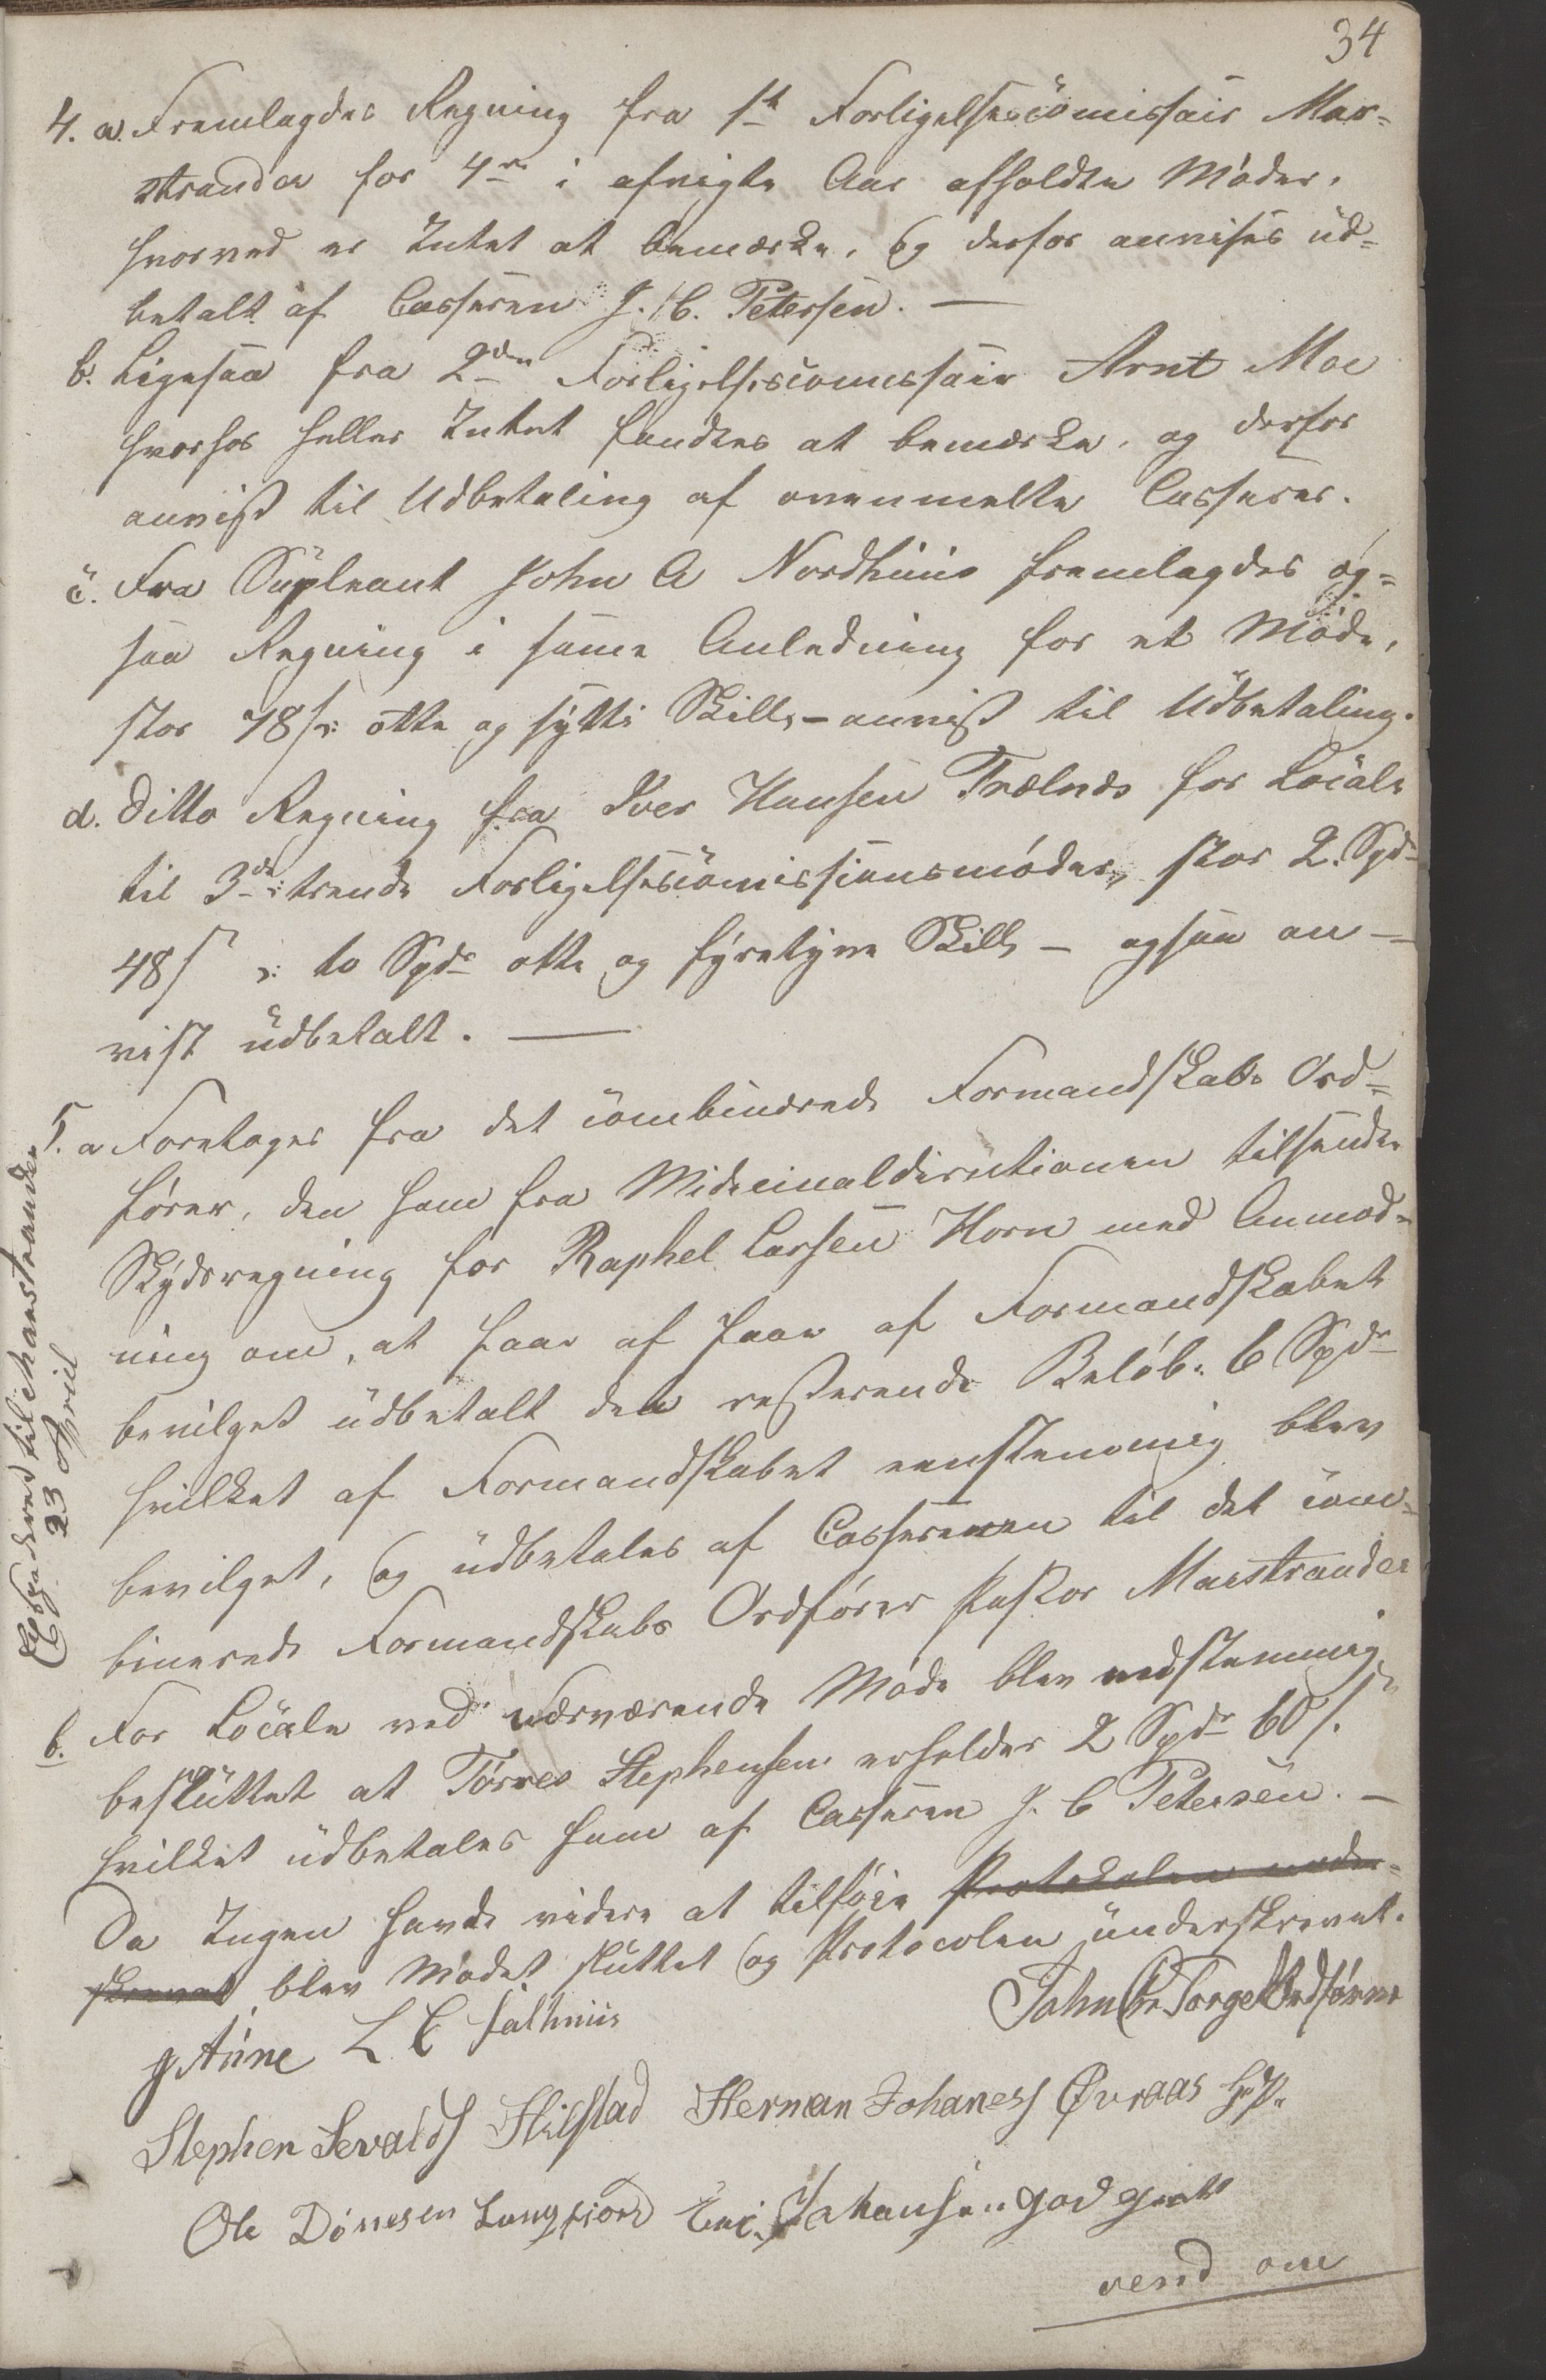 34
4. a. Fremlagdes Regning fra 1st Forligelsescomissair Mar-
strander for 4re i afvigte Aar afholdte Møder,
hvorved er Intet at bemærke, og derfor anvises ud-
betalt af Casseren J. C. Petersen. —
b. Ligesaa fra 2den Forligelsescomissair Arnt Moe
hvorhos heller Intet fandtes at bemærke, og derfor
anvist til Udbetaling af ovenmelte Casserer.
c. Fra Supleant John A Nordhuus fremlagdes og-
saa Regning i samme Anledning for et Møde,
stor 78 s: otte og sytti Skill, – anvist til Udbetaling.
d. Ditto Regning fra Iver Hansen Trælnæs for Locale
til 3de: trende Forligelsescomissionsmøder, stor 2 Spd
48 s ɔ: to Spdr otte og fyretyve Skill – ogsaa an-
vist udbetalt. —
5. a Foretoges fra det combinerede Formandskabs Ord-
fører, den ham fra Medicinaldirectionen tilsendte
Skydsregning for Raphel Larsen Horn med Anmod-
ning om, at faae af af Formandskabet
bevilget udbetalt det resterende Beløb: 6 Spdr
hvilket af Formandskabet eenstemmig blev
bevilget, og udbetales af Casereren til det com-
binerede Formandskabs Ordfører Pastor Marstrander
b. For Locale ved nærværende Møde blev eedstemmig
besluttet at Tørres Stephensen erholder 2 Spdr 60 s.
hvilket udbetales ham af Casseren J. C Petersen. —
Da Ingen havde videre at tilføie Protokolen under-
skrevet blev Mødet sluttet og Protocolen underskrevet.
John Chr. Torge Ordførrer
J Aune L C
Stephen Sevalds Hilstad Herman Johanes Øvraas
Ole Dønesen Langfjord Johansen
vend om
Expederet til Marstrander
23 April